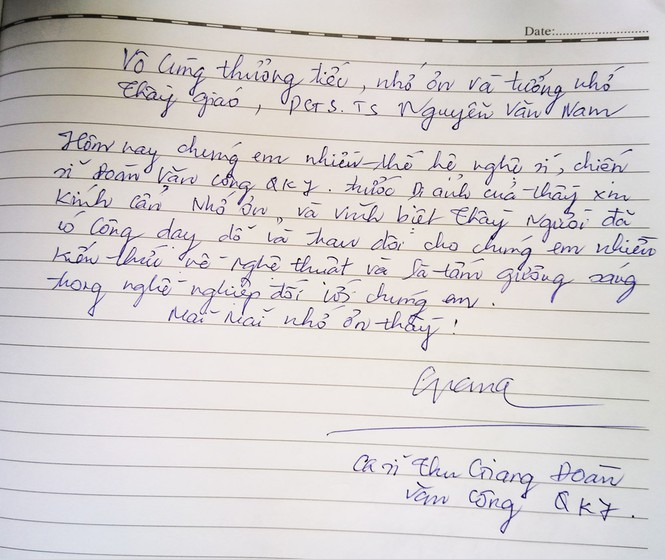 Date:..............................
Vô Cùng thương tiếc, nhớ ơn và tưởng nhớ
Thầy giáo, PGS.TS Nguyễn Văn Nam
Hôm nay chúng em nhiều thế hệ nghệ sĩ, chiến
sĩ Đoàn Văn công QK7. trước Di ảnh của thầy xin
Kính cẩn Nhớ ơn, và vĩnh biệt Thầy Người đã
có Công dạy dỗ và trao dồi cho chúng em nhiều
Kiến thức về nghệ thuật và là tấm gương sáng
trong nghề nghiệp đối với chúng em.
Mãi Mãi nhớ ơn thầy!
Giang
Ca sĩ Thu Giang Đoàn
Văn Công QK7.